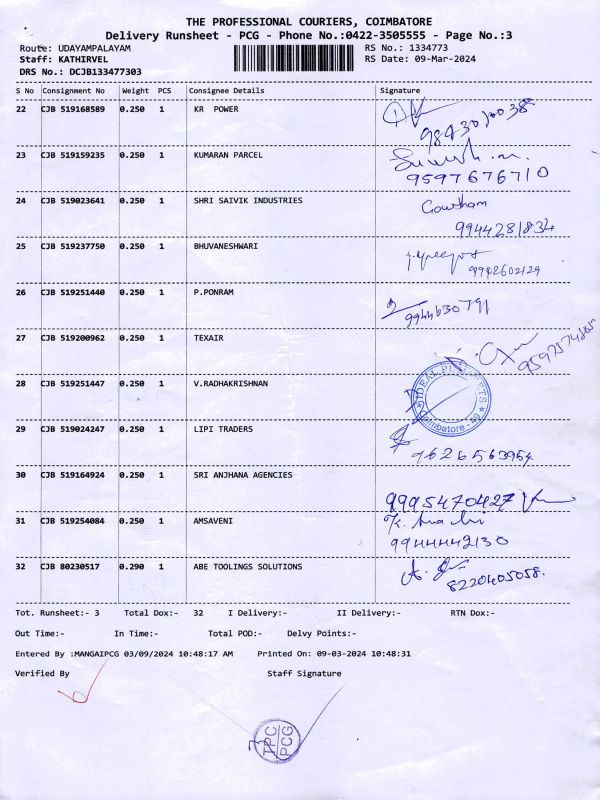 THE PROFESSIONAL COURIERS, COIMBATORE
Delivery Runsheet - PCG - Phone No.:0422-3505555 - Page No.:3
Route: UDAYAMPALAYAM RS No.: 1334773
Staff: KATHIRVEL RS Date: 09-Mar-2024
DRS No.: DCJB133477303
S No Consignment No Weight PCS Consignee Details Signature
22 CJB 519168589 0.250 1 KR POWER
23 CJB 519159235 0.250 1 KUMARAN PARCEL
9597676710
24 CJB 519023641 0.250 1 SHRI SAIVIK INDUSTRIES Gowtham
9944281834
25 CJB 519237750 0.250 1 BHUVANESHWARI
9942602129
26 CJB 519251440 0.250 1 P.PONRAM
9944630791
27 CJB 519200962 0.250 1 TEXAIR
28 CJB 519251447 0.250 1 V.RADHAKRISHNAN
29 CJB 519024247 0.250 1 LIPI TRADERS
9626563954
30 CJB 519164924 0.250 1 SRI ANJHANA AGENCIES
9995470427
31 CJB 519254084 0.250 1 AMSAVENI
9944442130
32 CJB 80230517 0.290 1 ABE TOOLINGS SOLUTIONS
8220405058.
Tot. Runsheet:- 3 Total Dox:- 32 I Delivery:- II Delivery:- RTN Dox:-
Out Time:- In Time:- Total POD:- Delvy Points:-
Entered By :MANGAIPCG 03/09/2024 10:48:17 AM Printed On: 09-03-2024 10:48:31
Verified By Staff Signature
TPC
PCG